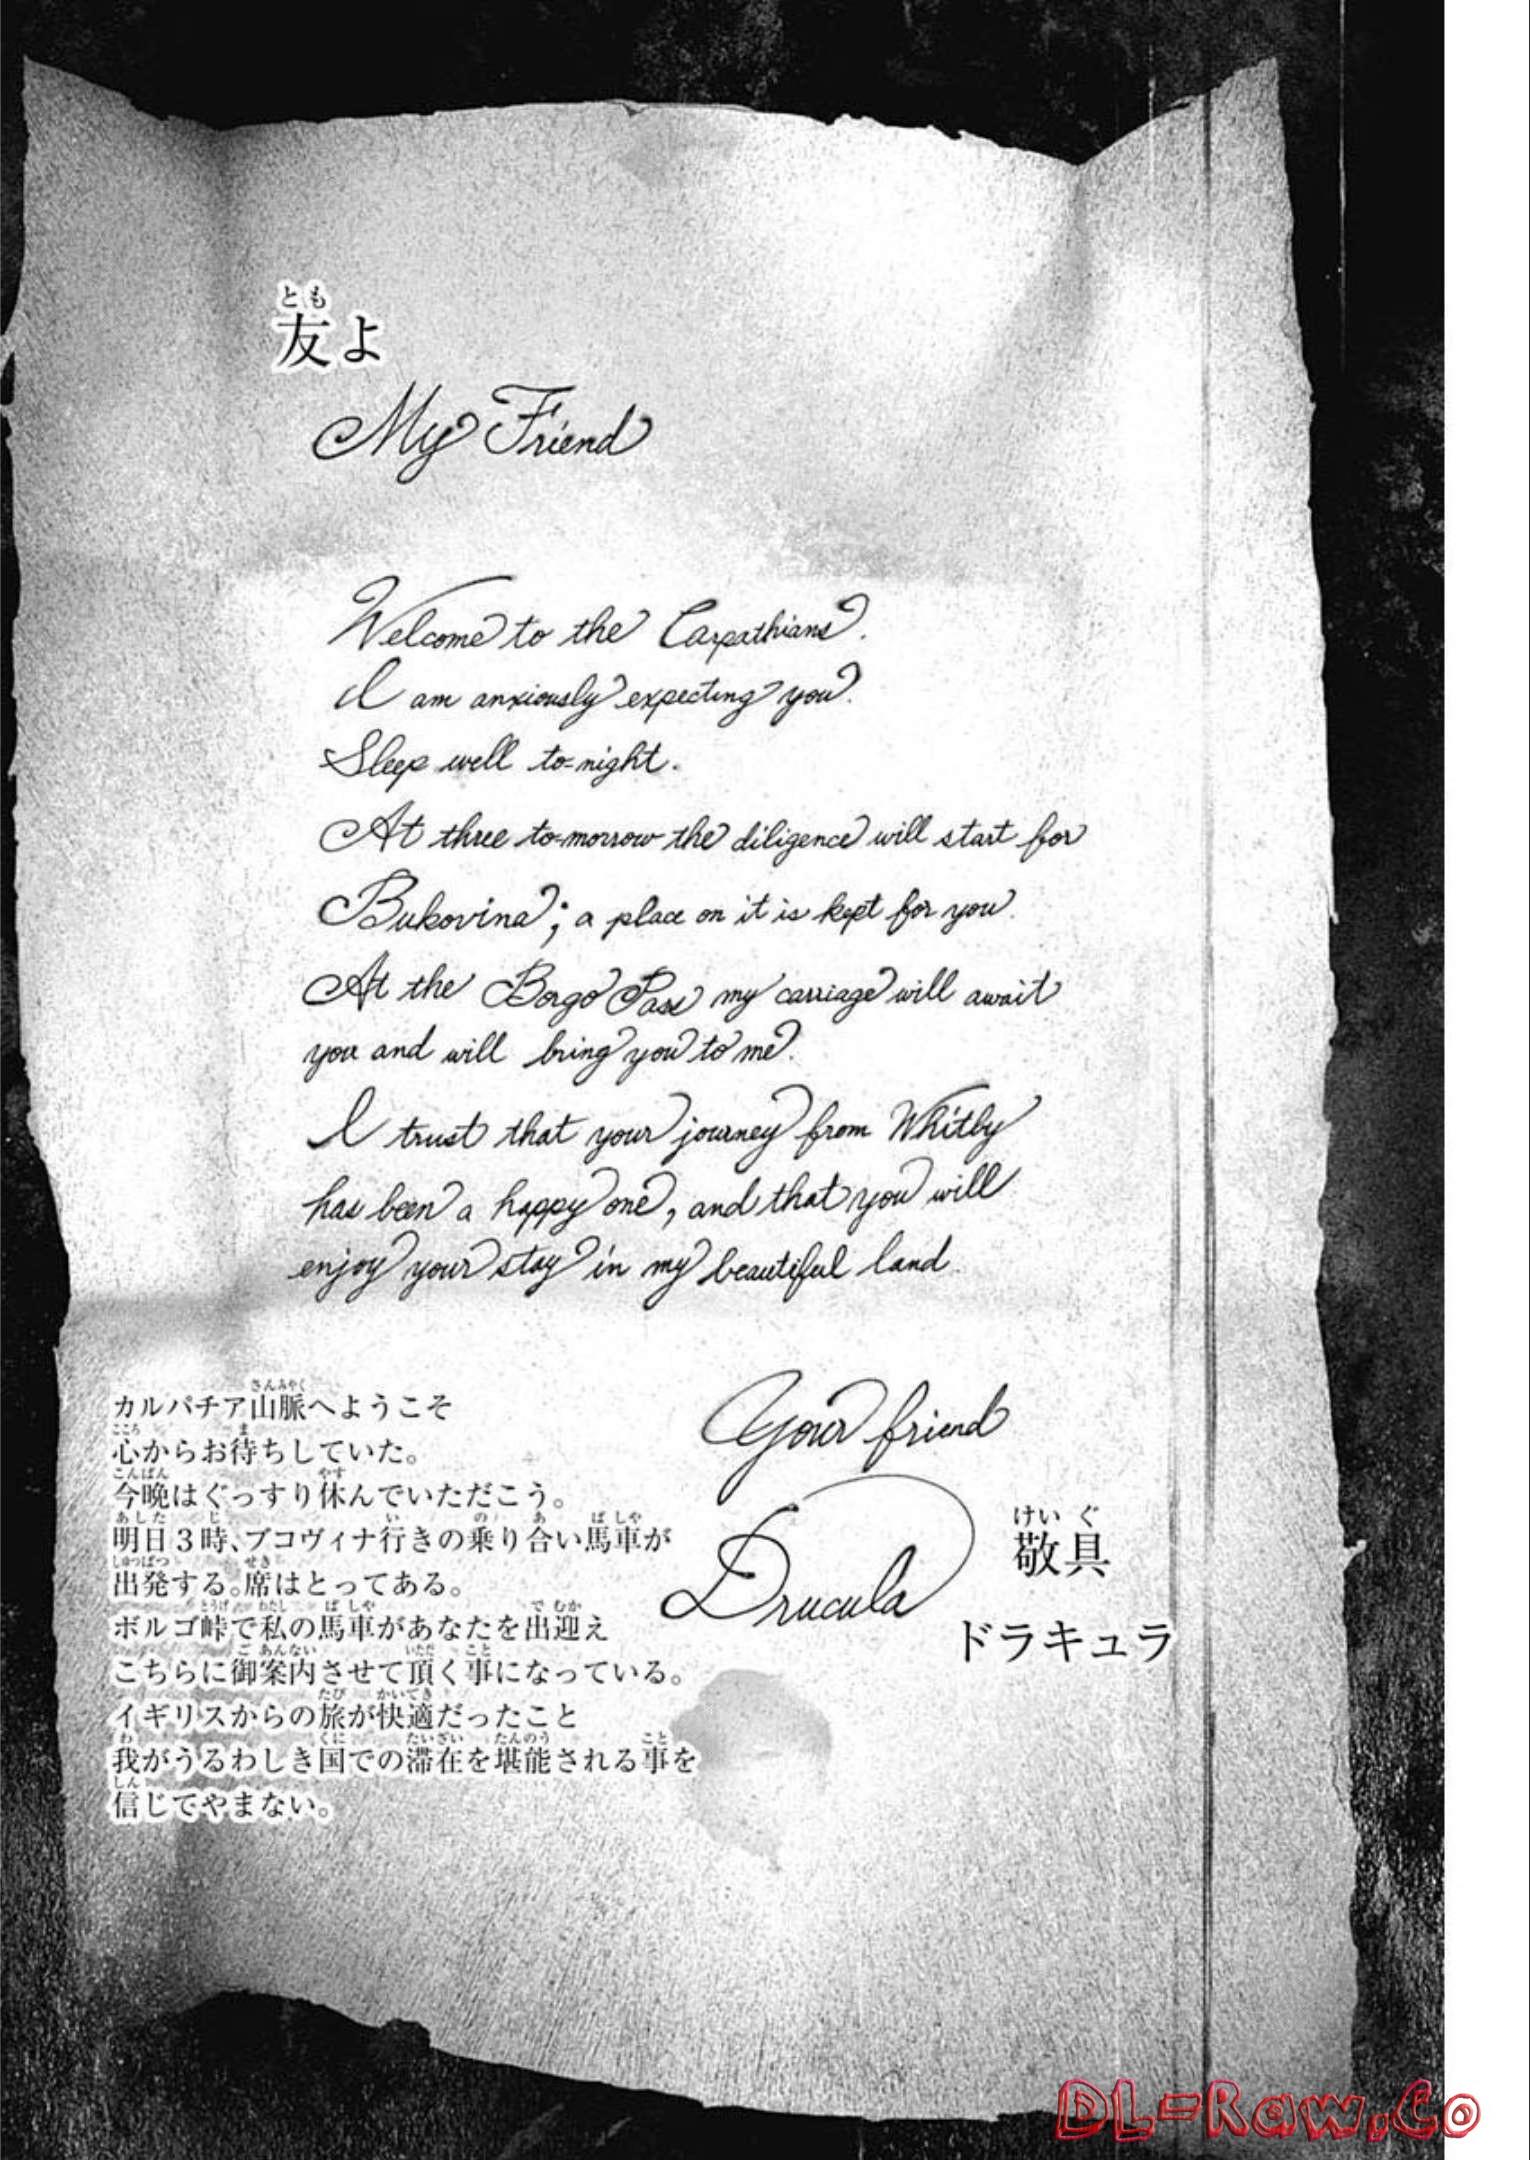 友よ
My Friend
Welcome to the Carpathians.
I am anxiously expecting you.
Sleep well to=night.
At three to=morrow the diligence will start for
Bukovina; a place on it is kept for you.
At the Borgo Pass my carriage will await
you and will bring you to me.
I trust that your journey from Whitby
has been a happy one, and that you will
enjoy your stay in my beautiful land.
Your friend
Drucula
敬具
ドラキュラ
カルパチア山脈へようこそ
心からお待ちしていた。
今晩はぐっすり休んでいただこう。
明日3時、ブコヴィナ行きの乗り合い馬車が
出発する。席はとってある。
ボルゴ峠で私の馬車があなたを出迎え
こちらに御案内させて頂く事になっている。
イギリスからの旅が快適だったこと
我がうるわしき国での滞在を堪能される事を
信じてやまない。
DL=Raw.Co